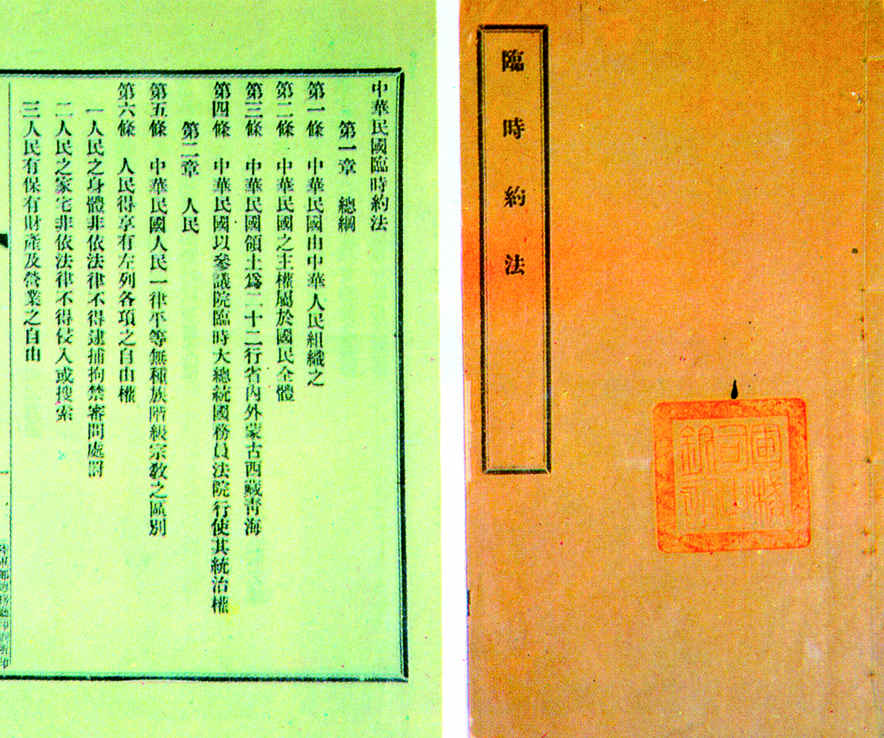 臨時約法
中華民國臨時約法
第一章 總綱
第一條 中華民國由中華人民組織之
第二條 中華民國之主權屬於國民全體
第三條 中華民國領土爲二十二行省內外蒙古西藏靑海
第四條 中華民國以參議院臨時大總統國務員法院行使其統治權
第二章 人民
第五條 中華民國人民一律平等無種族階級宗敎之區別
第六條 人民得享有左列各項之自由權
一 人民之身體非依法律不得逮捕拘禁審問處罰
二 人民之家宅非依法律不得侵入或搜索
三 人民有保有財產及營業之自由